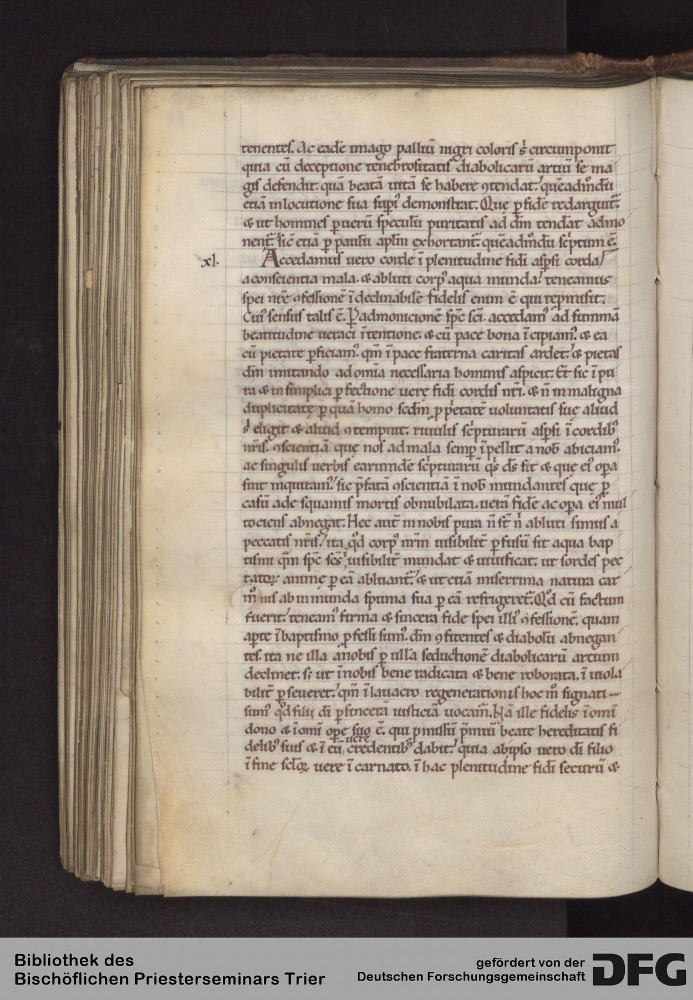 tenentes. Ac eadē imago palliū nigri coloris s̄ circumponit
quia cū deceptione tenebrositatis diabolicarū artiū se ma
gis defendit. quā beatā uitā se habere ꝯtendat. quēadmdū
etiā in locutione sua supi demonstrat. Que p fidē redarguit̄.
& ut homines p uerū speculū puritatis ad dm̄ tendāt admo
nent̄. sic etiā p paulū aplm̄ exhortant̄. quēadmdū scptum ē.
xl. Accedamus uero corde ī plenitudine fidi aspsi corda
a conscientia mala. & abluti corp aqua munda. teneamus
spei nr̄e ꝯfessionē īdeclinabilē. fidelis enim ē qui repmisit.
Cui sensus talis ē. P admonicionē spc sci. accedam ad summā
beatitudinē ueraci ītentione. & cū pace bona īcipiam. & ea
cū pietate pficiam. qm̄ ī pace fraterna caritas ardet. & pietas
dm̄ imitando ad omia necessaria hominis aspicit. Et sic ī pu
ra & in simplici pfectione uere fidi cordis nr̄i. & n̄ in maligna
duplicitate p quā homo scdm ppetatē uoluntatis sue aliud
s̄ eligit & aliud ꝯtempnit. riuulis scpturarū aspsi ī cordib
nr̄is. ꝯscientiā que nos ad mala semp īpellit a nob abiciam.
ac singulis uerbis earundē scpturarū qs ds sit & que ei opa
sint inquiram. sic pfatā ꝯscientiā ī nob mundantes que p
casū ade squamis mortis obnubilata. uerā fidē ac opa ei mul
tociens abnegat. Hec aut̄ in nobis pura n̄ st̄ n̄ abluti simus a
peccatis nr̄is. ita qd corp nr̄m uisibilit̄ pfusū sit aqua bap
tismi qum spc scs īuisibilit̄ mundat & uiuificat. ut sordes pec
tatoꝝ anime p eā abluant̄. & ut etiā miserrima natura car
nis ab inmunda spuma sua p eā refrigeret̄. Qd cū factum
fuerit. teneam firma & sincera fide spei illi ꝯfessionē. quam
apte ī baptismo pfessi sum. dm̄ ꝯfitentes & diabolū abnegan
tes. ita ne illa a nobis p ulla seductionē diabolicarū artium
declinet. s; ut ī nobis bene radicata & bene roborata. ī uiola
bilit̄ pseueret. qm̄ ī lauacro regenerationis hoc m̄ signati
sum qd filii di p sincerā iusticiā uocam̄. Nā ille fidelis ī omi
dono & ī omi ope suo ē. qui pmisiū pmiū beate hereditatis fi
delib suis & ī eū uere credentib dabit. quia ab ipso uero di filio
ī fine scloꝝ uere ī carnato. ī hac plenitudine fidi securū &
Bibliothek des
Bischöflichen Priesterseminars Trier
gefördert von der
Deutschen Forschungsgemeinschaft
DFG